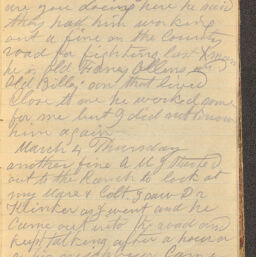 are you doing here he said
they had him working
out a fine on the County
road for fighting last
he is old
Old Billy son that lived
Close to me he worked some
for me but I did not know
him again
March 4 Thursday
another fine A M I started
out to the Ranch to look at
my Mare & Colt. I saw Dr
Klinker as I went and he
Came out into the road and
kept talking after a hour or
Came